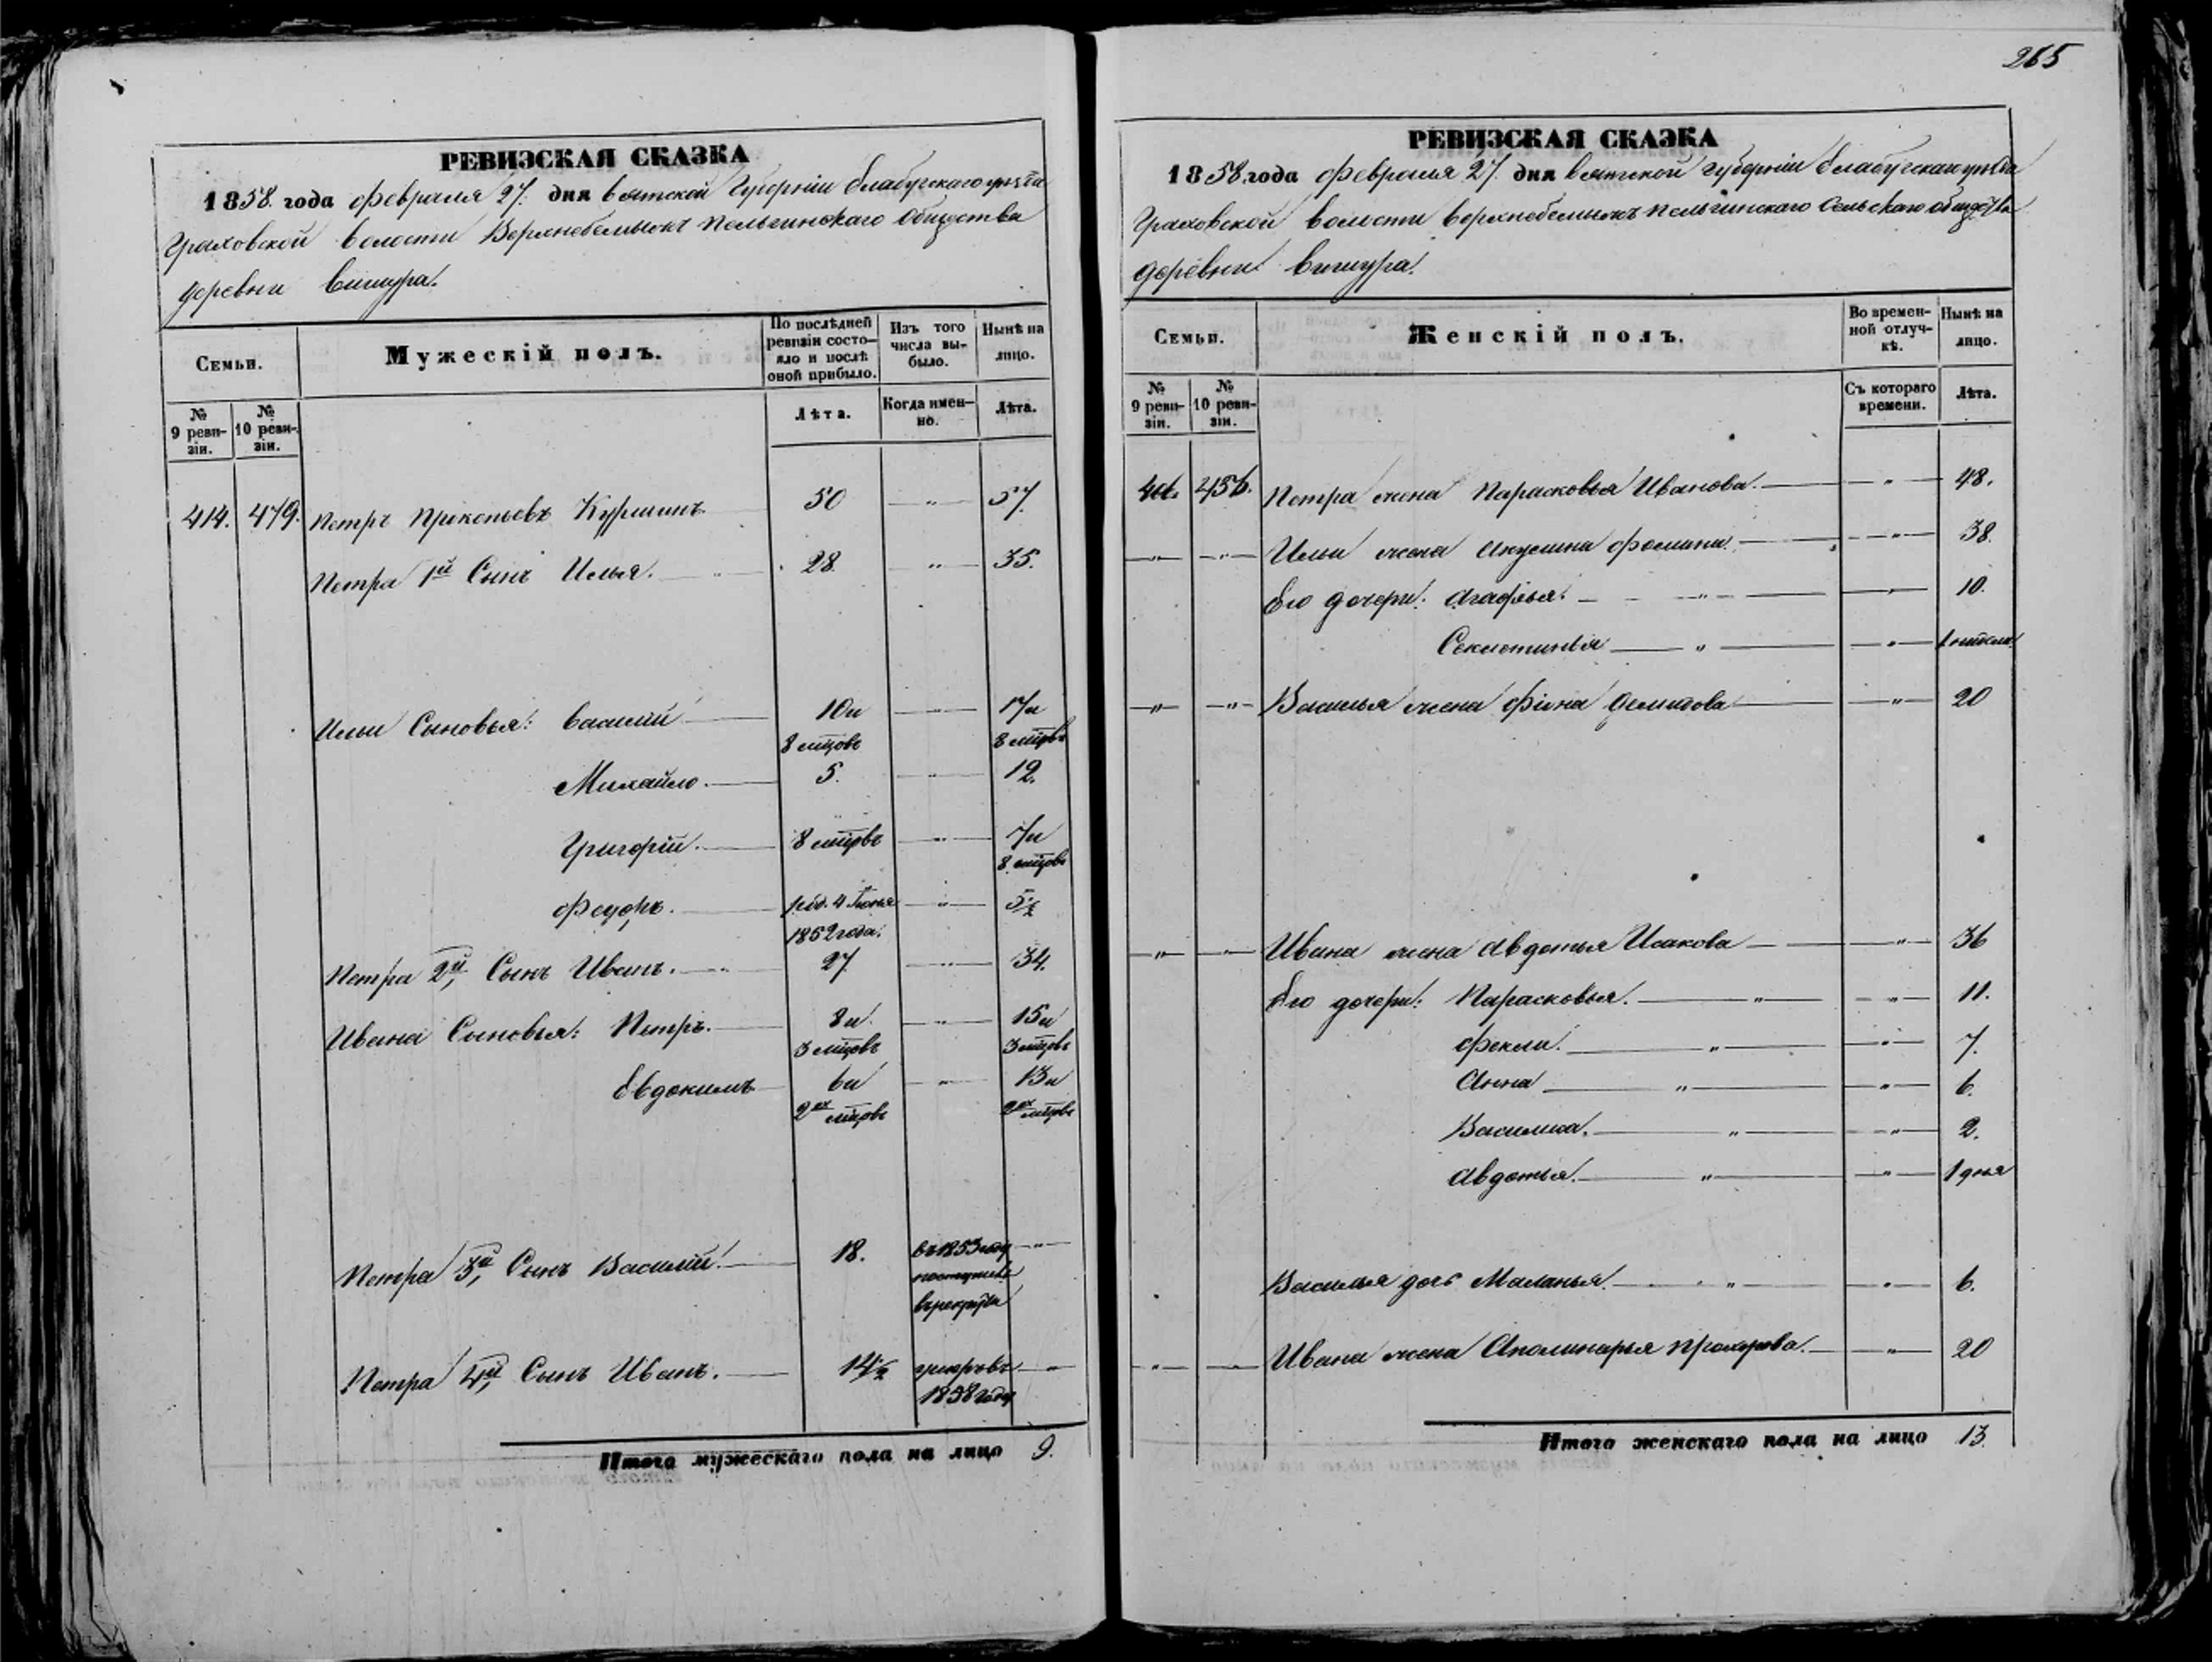 265
РЕВИЗСКАЯ СКАЗКА
1858 года февраля 27 дня Вятской Губернiи Елабугскаго уѣзда
Граховской волости Верхнебемыжъ Пельгинскаго общества
деревни Вишура.
Семьи.
Мужескiй полъ.
По послѣдней ревизiи состояло и послѣ оной прибыло.
Изъ того числа выбыло.
Нынѣ на лицо.
№ 9 ревизiи.
№ 10 ревизiи.
Лѣта.
Когда именно.
Лѣта.
414. 479. Петръ Прокопьевъ Куршинъ 50 „ 57.
Петра 1й Сынъ Илья. 28. „ 35.
Ильи Сыновья: Василiй 10 и 8 мцовъ „ 17 и 8 мцовъ
Михайло. 5. „ 12.
Григорiй. 8 мцовъ „ 7 и 8 мцовъ
Федоръ. 4 Iюня 1852 года. „ 5½
Петра 2й, Сынъ Иванъ. 27. „ 34.
Ивана Сыновья: Петръ. 8 и 3 мцовъ „ 15 и 3 мцовъ
Евдокимъ 6 и 2хъ мцовъ „ 13 и 2хъ мцовъ
Петра 3й, Сынъ Василiй. 18. въ 1853 году поступилъ въ рекруты „
Петра 4й, Сынъ Иванъ. 14½ умеръ въ 1858 году „
Итого мужескаго пола на лицо 9.
РЕВИЗСКАЯ СКАЗКА
1858 года февраля 27 дня Вятской губернiи Елабугскаго уѣзда
Граховской волости Верхнебемыжъ Пельгинскаго сельскаго общества
деревни Вишура.
Семьи.
Женскiй полъ.
Во временной отлучкѣ.
Нынѣ на лицо.
№ 9 ревизiи.
№ 10 ревизiи.
Съ котораго времени.
Лѣта.
456. Петра жена Парасковья Иванова. „ 48.
„ „ Ильи жена Акулина Фомина. „ 38.
Его дочери: Агафья. „ „ 10.
Секлетинья „ „
„ „ Василья жена Фiона Демидова „ 20
„ „ Ивана жена Авдотья Исакова „ 36
Его дочери: Парасковья. „ „ 11.
Фекла. „ „ 7.
Анна „ „ 6.
Василиса. „ „ 2.
Авдотья. „ „ 1 дня
Василья дочь Маланья. „ „ 6.
„ „ Ивана жена Аполинарья Прохорова. „ 20
Итого женскаго пола на лицо 13.